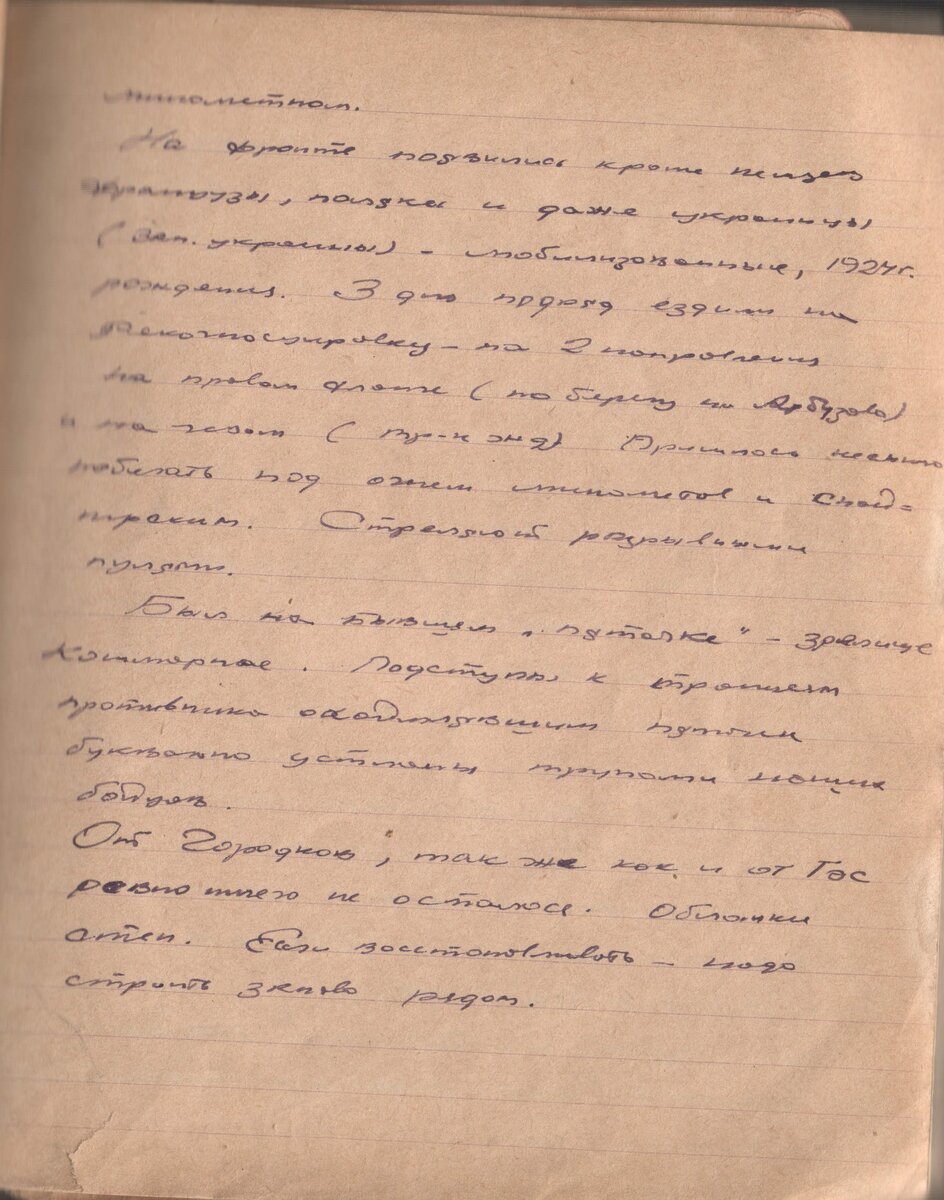 минометном.
На фронте появились кроме немцев
французы, поляки и даже украинцы
(зап. украины) – мобилизованные, 1924 г.
рождения. 3 дня подряд ездили на
Рекогносцировку – на 2 направления
на правом фланге (по берегу Арбузово)
и на левом Пришлось немного
побегать под огнем минометов и снай=
перским. Стреляют разрывными
пулями.
Был на бывшем „пяточке" – зрелище
Кошмарное. Подступы к траншеям
противника окаймлявшим пяточек
буквально устланы трупами наших
бойцов.
От Городков, так же как и от Гэс
ровно ничего не осталось. Обломки
стен. Если восстановливать – надо
строить заново рядом.